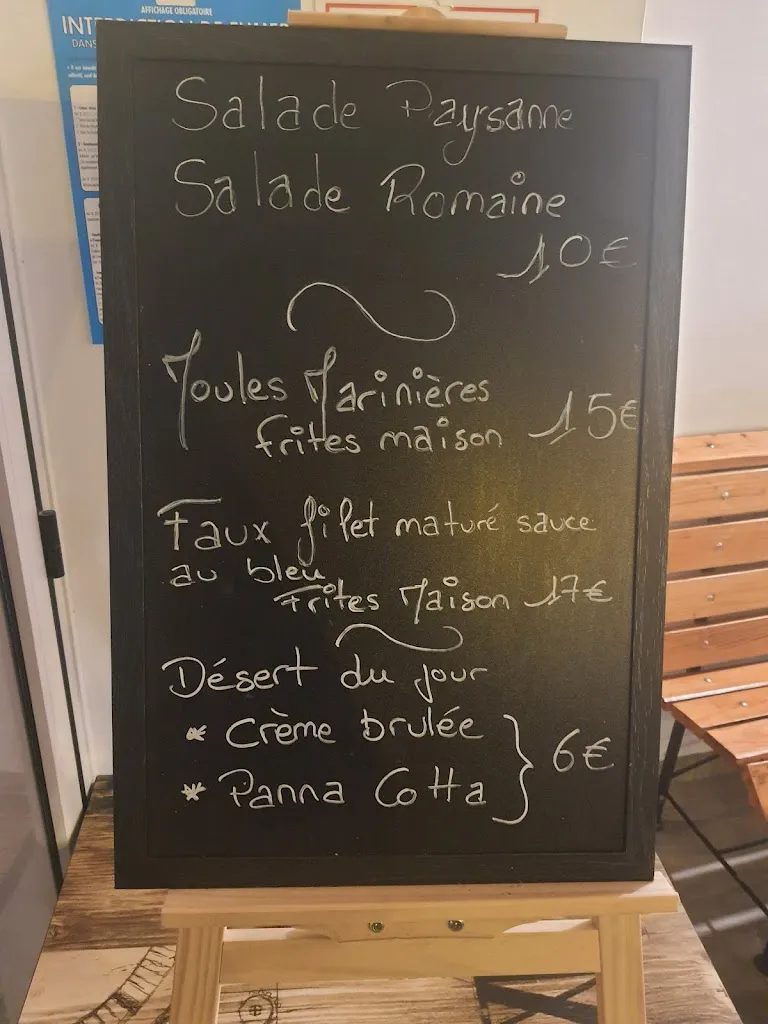 AFFICHAGE OBLIGATOIRE
INTERDICTION DE FUMER
DANS
Salade Paysanne
Salade Romaine
10€
Moules Marinières
frites maison 15€
Faux filet maturé sauce
au bleu
Frites Maison 17€
Désert du jour
* Crème brulée
* Panna Cotta
6€